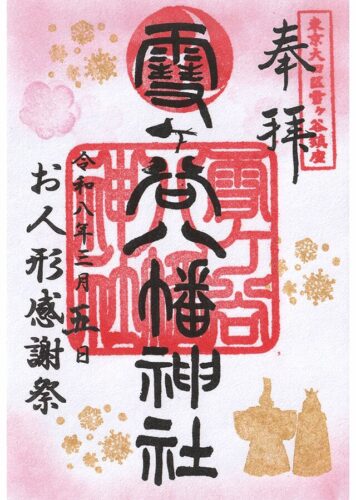 東京大田区雪ヶ谷鎮座
奉拝
雪ヶ谷八幡神社
雪ヶ谷八幡神社
令和八年三月五日
お人形感謝祭